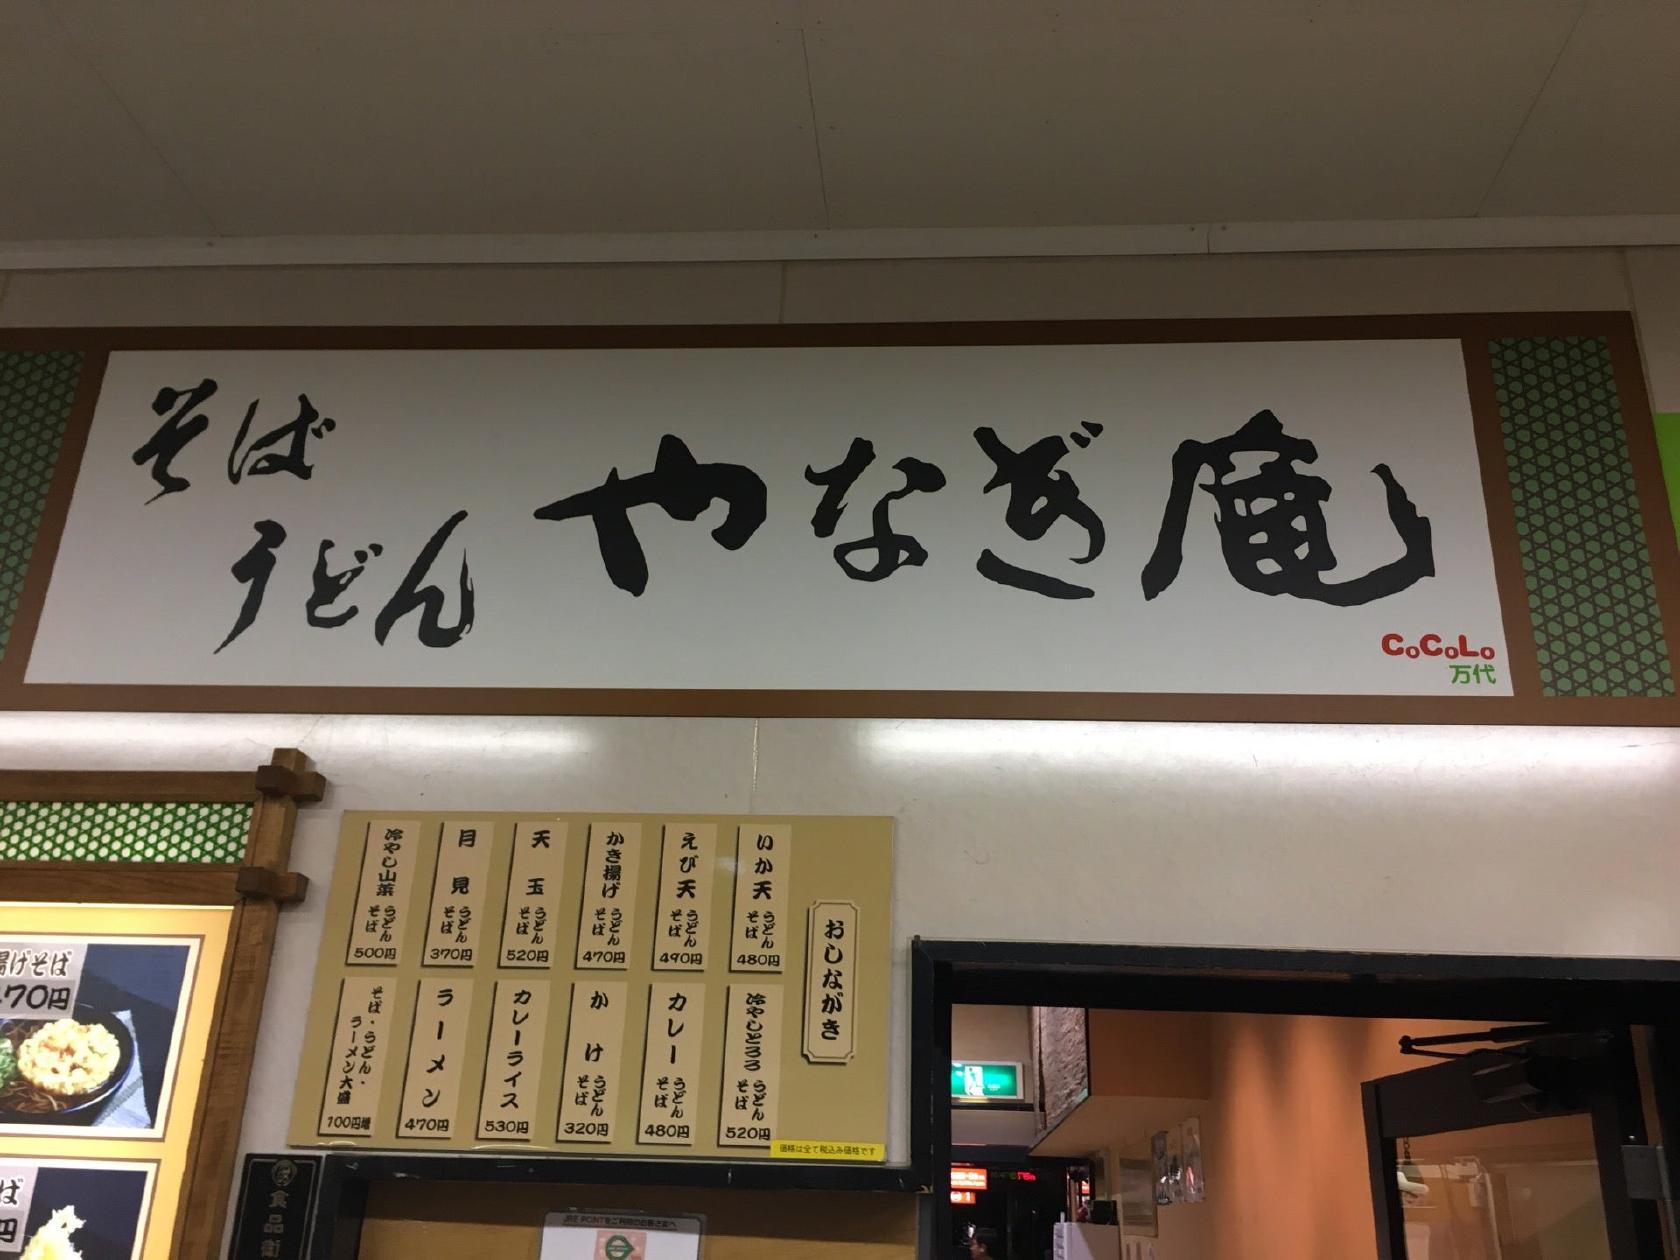 そば
うどん
やなぎ庵
CoCoLo
万代
おしながき
いか天 うどん そば 480円
えび天 うどん そば 490円
かき揚げ うどん そば 470円
天玉 うどん そば 520円
月見 うどん そば 370円
冷やし山菜 うどん そば 500円
冷やしとろろ うどん そば 520円
カレー うどん そば 480円
かけ うどん そば 320円
カレーライス 530円
ラーメン 470円
そば・うどん・ラーメン大盛 100円増
価格は全て税込み価格です
揚げそば
470円
ば
円
食品衛
JRE POINTをご利用のお客さまへ